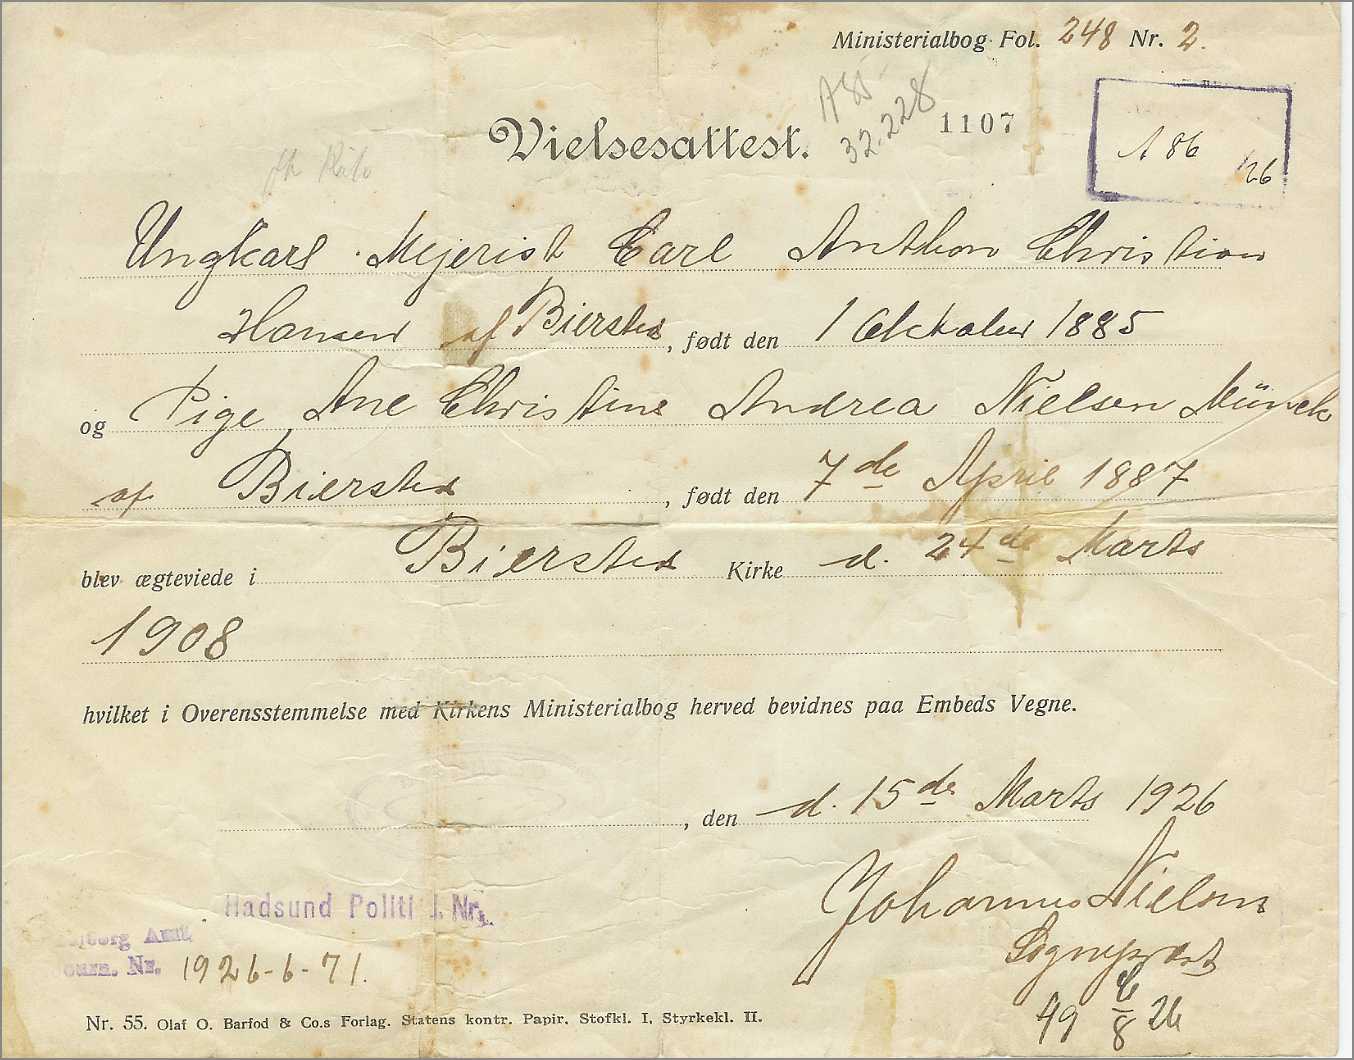 Ministerialbog Fol. 248 Nr. 2.
A 85
32.228
1107
Vielsesattest.
A 86
126
Ungkarl Mejerist Carl Anthon Christian
Hansen af Biersted, født den 1 Oktober 1885
og Pige, Ane Christine Andrea Nielsen Münck
af Biersted, født den 7de April 1887
blev ægteviede i Biersted Kirke d. 24de Marts
1908
hvilket i Overensstemmelse med Kirkens Ministerialbog herved bevidnes paa Embeds Vegne.
, den d. 15de Marts 1926
Johannes Nielsen
Sognepræst
Hadsund Politi J. Nr.
Amt,
Journ. Nr. 1926-6-71.
49 6/8 26
Nr. 55. Olaf O. Barfod & Co.s Forlag. Statens kontr. Papir. Stofkl. I, Styrkekl. II.